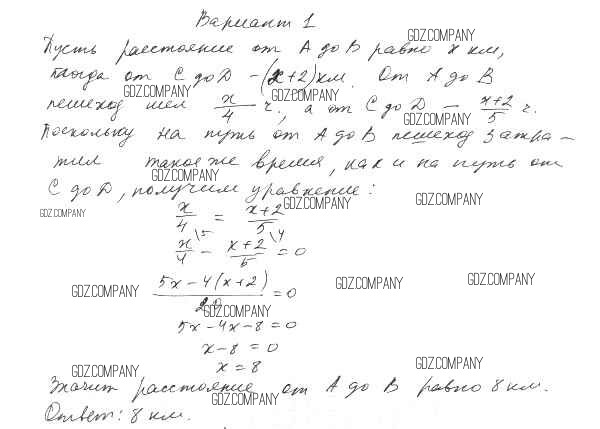 Вариант 1
GDZ.COMPANY
Пусть расстояние от A до B равно x км,
тогда от C до D - (x+2) км. От A до B
GDZ.COMPANY GDZ.COMPANY
пешеход шел x/4 ч., а от C до D - x+2/5 ч.
GDZ.COMPANY
Поскольку на путь от A до B пешеход затра-
тил такое же время, как и на путь от
GDZ.COMPANY
C до D, получим уравнение:
GDZ.COMPANY GDZ.COMPANY GDZ.COMPANY
x/4 = x+2/5
x/4 \5 - x+2/5 \4 = 0
GDZ.COMPANY GDZ.COMPANY GDZ.COMPANY
5x-4(x+2)/20 = 0
GDZ.COMPANY
5x-4x-8=0
x-8=0
x=8
GDZ.COMPANY GDZ.COMPANY
Значит расстояние от A до B равно 8 км.
GDZ.COMPANY
Ответ: 8 км.